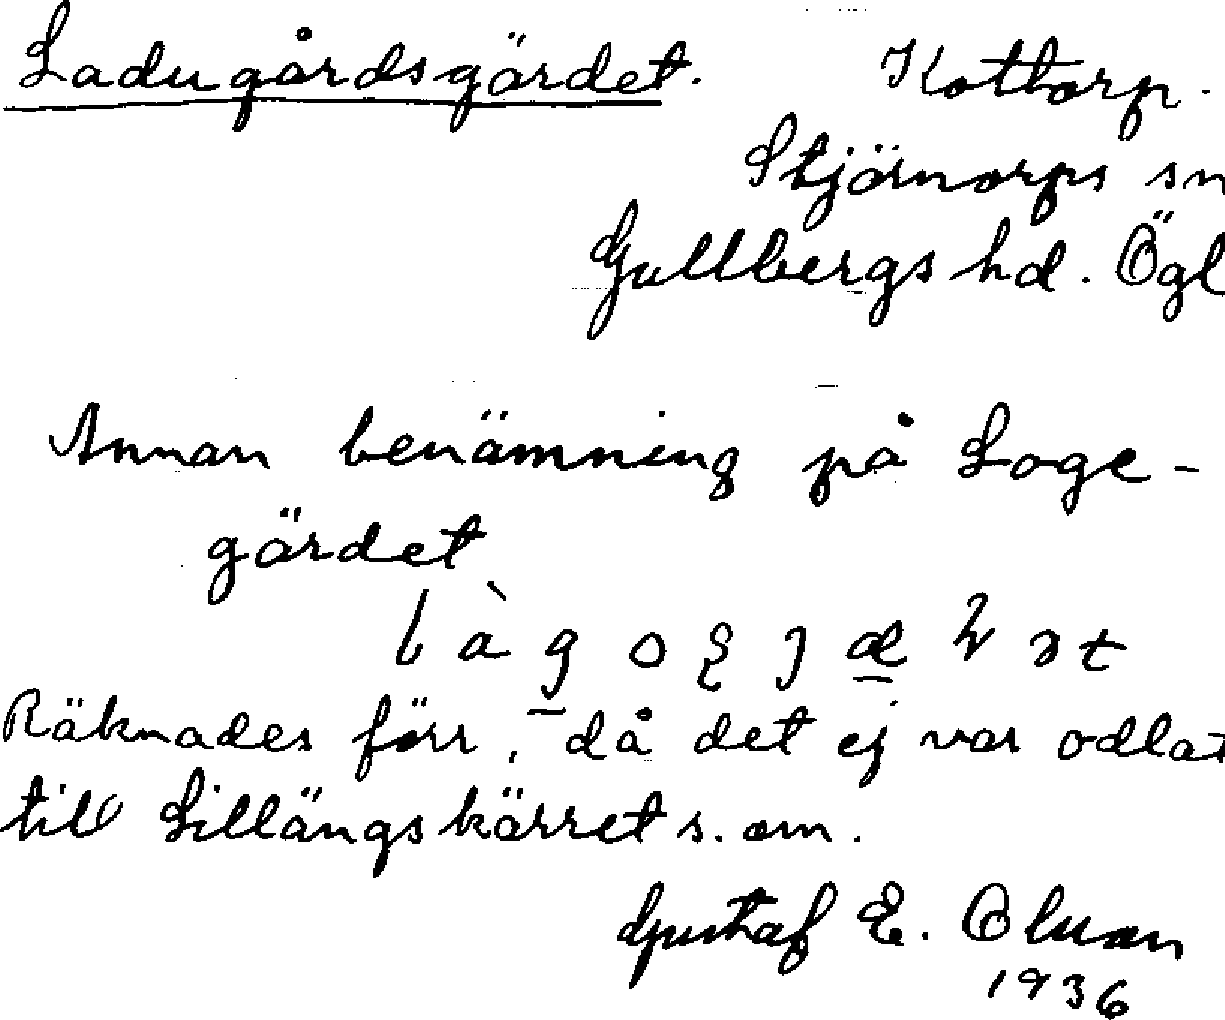 Ladugårdsgärdet. Kottorp.
Stjärnorps sn
Gullbergs hd. Ögl
Annan benämning på Loge-
gärdet
Räknades förr, då det ej var odlat
till Lillängskärret s. om.
Gustaf E. Olsson
1936